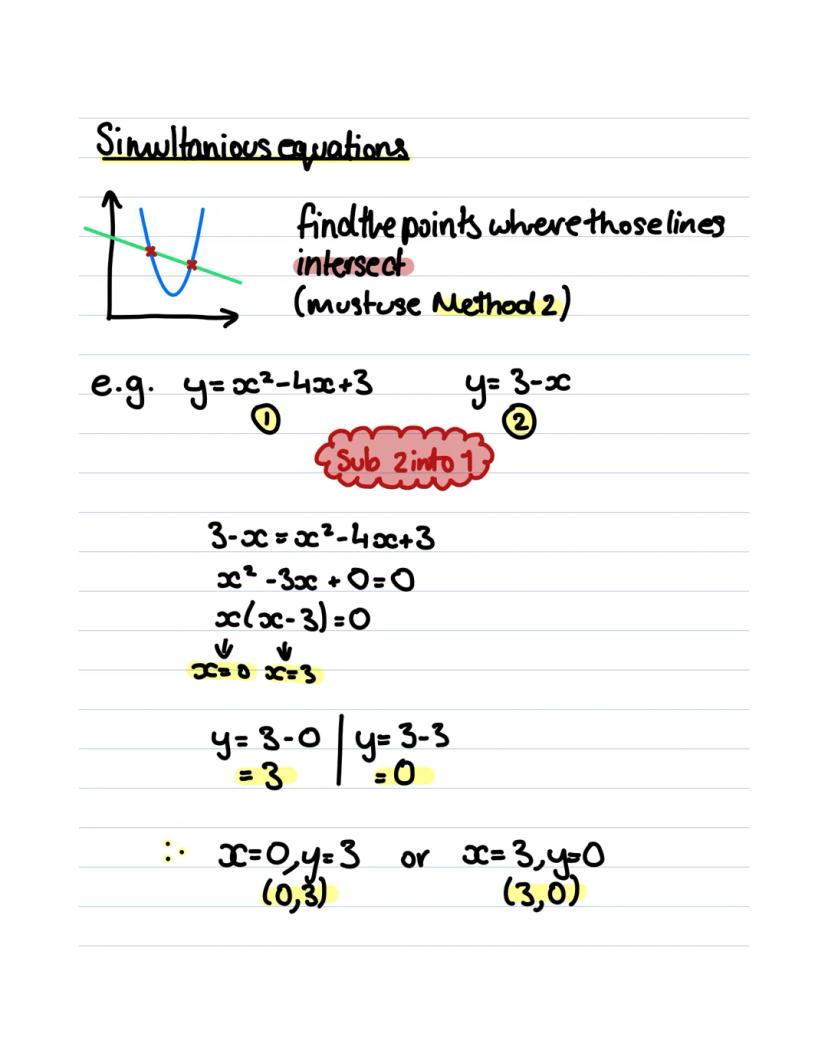 Simultanious equations
find the points where those lines
intersect
(must use Method 2)
e.g. y=x²-4x+3 y= 3-x
① ②
Sub 2 into 1
3-x=x²-4x+3
x²-3x+0=0
x(x-3)=0
↓ ↓
x=0 x=3
y= 3-0 | y= 3-3
= 3 | = 0
∴ x=0,y=3 or x=3,y=0
(0,3) (3,0)